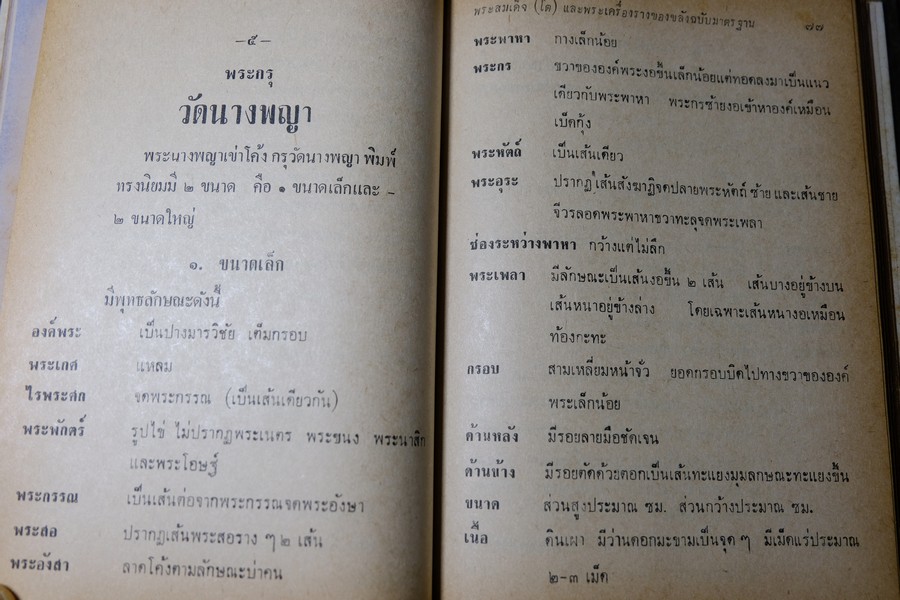 —๕—
พระกรุ
วัดนางพญา
พระนางพญาเข่าโค้ง กรุวัดนางพญา พิมพ์
ทรงนิยมมี ๒ ขนาด คือ ๑ ขนาดเล็กและ -
๒ ขนาดใหญ่
๑. ขนาดเล็ก
มีพุทธลักษณะดังนี้
องค์พระ เป็นปางมารวิชัย เต็มกรอบ
พระเกศ แหลม
ไรพระสก จดพระกรรณ (เป็นเส้นเดียวกัน)
พระพักตร์ รูปไข่ ไม่ปรากฏพระเนตร พระขนง พระนาสิก
และพระโอษฐ์
พระกรรณ เป็นเส้นต่อจากพระกรรณจดพระอังษา
พระสอ ปรากฏเส้นพระสอราง ๆ ๒ เส้น
พระอังสา ลาดโค้งตามลักษณะบ่าคน
พระสมเด็จ (โต) และพระเครื่องรางของขลังฉบับมาตรฐาน ๘๗
พระพาหา กางเล็กน้อย
พระกร ขวาขององค์พระงอขึ้นเล็กน้อยแต่ทอดลงมาเป็นแนว
เดียวกับพระพาหา พระกรซ้ายงอเข้าหาองค์เหมือน
เบ็ดกุ้ง
พระหัตถ์ เป็นเส้นเดียว
พระอุระ ปรากฏเส้นสังฆาฏิจดปลายพระหัตถ์ ซ้าย และเส้นชาย
จีวรลอดพระพาหาขวาทะลุจดพระเพลา
ช่องระหว่างพาหา กว้างแต่ไม่ลึก
พระเพลา มีลักษณะเป็นเส้นงอขึ้น ๒ เส้น เส้นบางอยู่ข้างบน
เส้นหนาอยู่ข้างล่าง โดยเฉพาะเส้นหนางอเหมือน
ท้องกะทะ
กรอบ สามเหลี่ยมหน้าจั่ว ยอดกรอบบิดไปทางขวาขององค์
พระเล็กน้อย
ด้านหลัง มีรอยลายมือชัดเจน
ด้านข้าง มีรอยตัดด้วยตอกเป็นเส้นทะแยงมุมลักษณะทะแยงขึ้น
ขนาด ส่วนสูงประมาณ ซม. ส่วนกว้างประมาณ ซม.
เนื้อ ดินเผา มีว่านดอกมะขามเป็นจุด ๆ มีเม็ดแร่ประมาณ
๒-๓ เม็ด